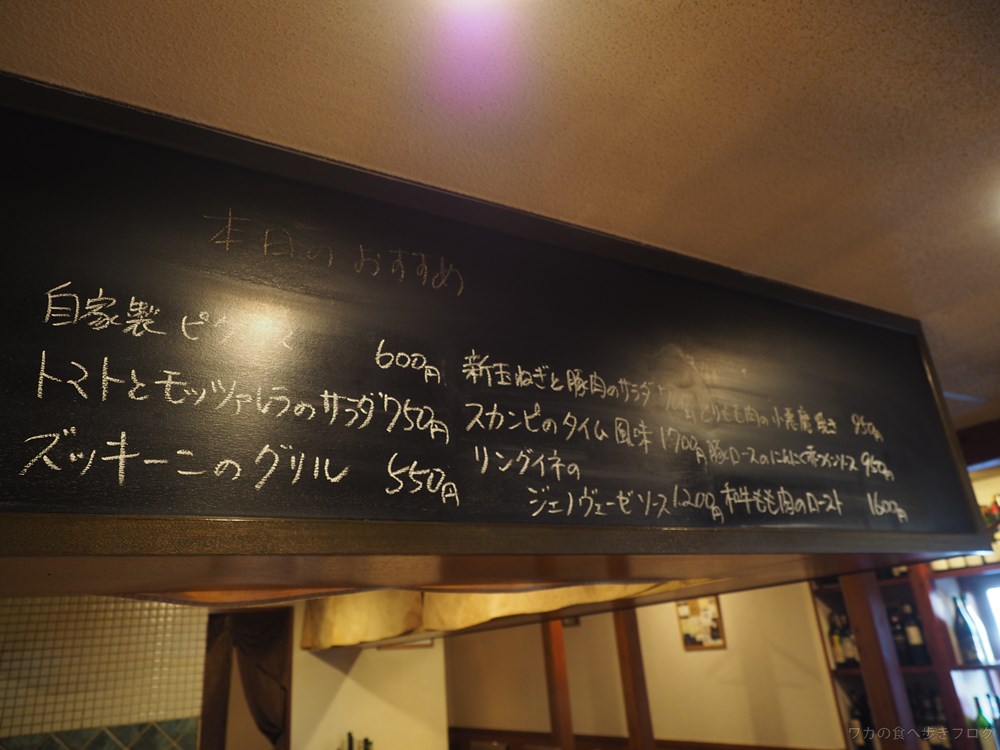 本日のおすすめ
自家製ピクルス
600円
トマトとモッツァレラのサラダ 750円
ズッキーニのグリル 550円
新玉ねぎと豚肉のサラダ
スカンピのタイム風味 1700円
リングイネの
ジェノヴェーゼソース 1200円
とりもも肉の小悪魔焼き 950円
豚ロースのにんにく赤ワインソース 950円
和牛もも肉のロースト 1600円
ワカの食べ歩きブログ